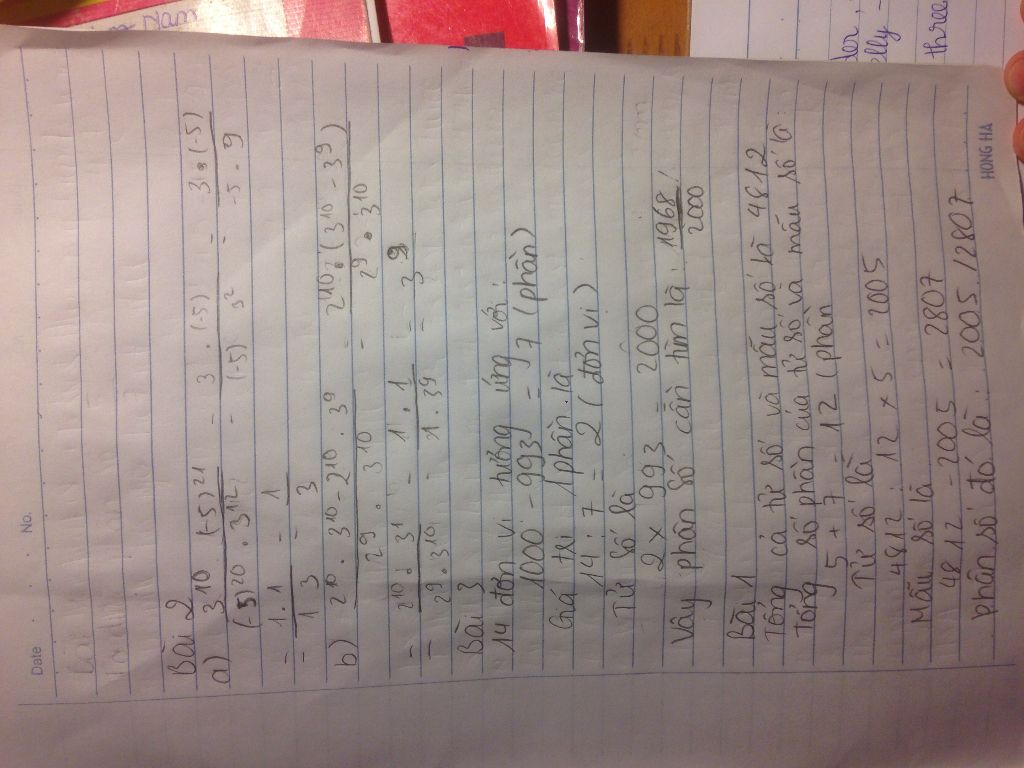 Date No.
Bài 2
a) 3^10 . (-5)^21 / (-5)^20 . 3^12 = 3 . (-5) / (-5) 3^2 = 3 . (-5) / -5 . 9
= 1 . 1 / 1 3 = 1 / 3
b) 2^10 . 3^10 - 2^10 . 3^9 / 2^9 . 3^10 = 2^10 . (3^10 - 3^9) / 2^9 . 3^10
= 2^10 . 3^1 / 2^9 . 3^10 = 1 . 1 / 1 . 3^9 = 3^9
Bài 3
14 đơn vị tương ứng với:
1000 - 993 = 7 (phần)
Giá trị 1 phần là
14 : 7 = 2 (đơn vị)
Tử số là
2 x 993 = 2000
Vậy phân số cần tìm là : 1968 / 2000
Bài 1
Tổng cả tử số và mẫu số là 4812
Tổng số phần của tử số và mẫu số là:
5 + 7 = 12 (phần
Tử số là
4812 : 12 x 5 = 2005
Mẫu số là
4812 - 2005 = 2807
phân số đó là : 2005 / 2807
HONG HA